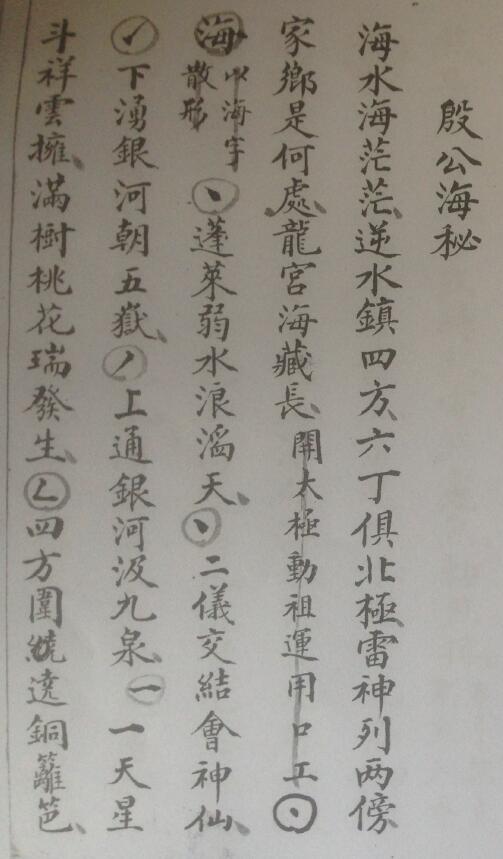 殷公海秘
海水海茫茫、逆水鎮四方、六丁俱北極雷神列两傍、
家鄉是何處、龍宮海藏長、開太極動祖運用口工㊀丶
海 以海字散形 丶蓬萊弱水浪滔天、丶二儀交結會神仙、
下湧銀河朝五嶽、丿上通銀河汲九泉、一一天星
斗祥雲擁、滿樹桃花瑞發生、𠃊四方圍繞遶銅籬笆、